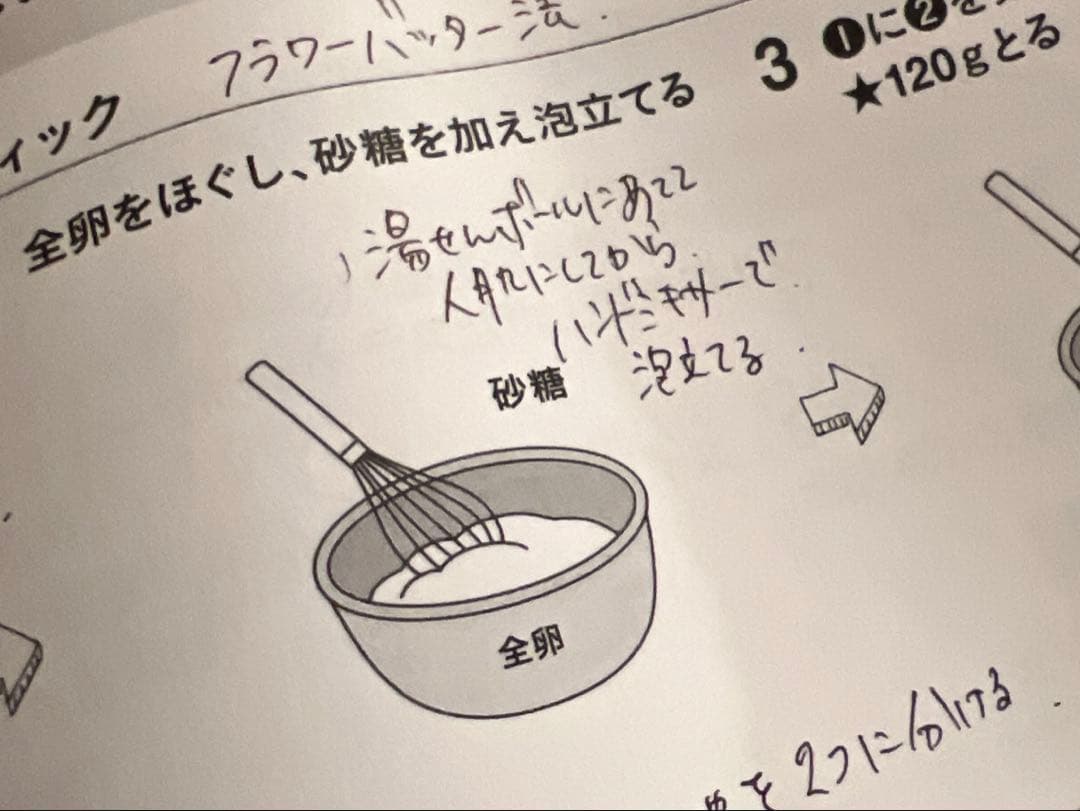 フラワーバッター法.
ィック
全卵をほぐし、砂糖を加え泡立てる
湯せんボールにあてて
人肌にしてから.
ハンドミキサーで.
泡立てる.
砂糖
全卵
3 ❶に❷を
★120gとる
を2つに分ける.